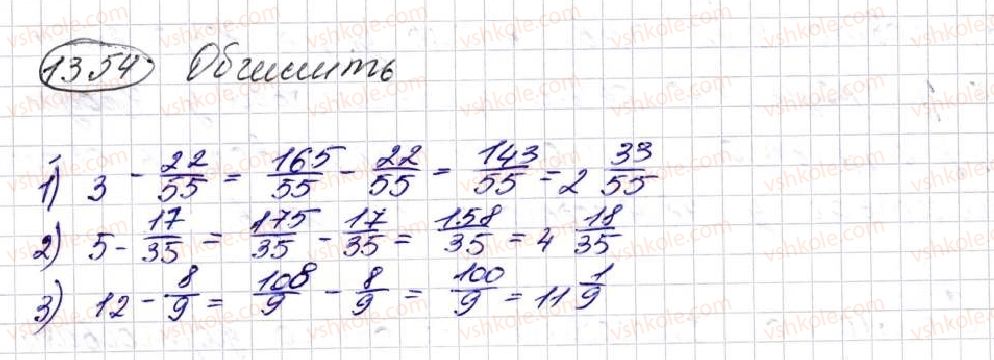 1354. Обчисліть
1) 3 - 22/55 = 165/55 - 22/55 = 143/55 = 2 33/55
2) 5 - 17/35 = 175/35 - 17/35 = 158/35 = 4 18/35
3) 12 - 8/9 = 108/9 - 8/9 = 100/9 = 11 1/9